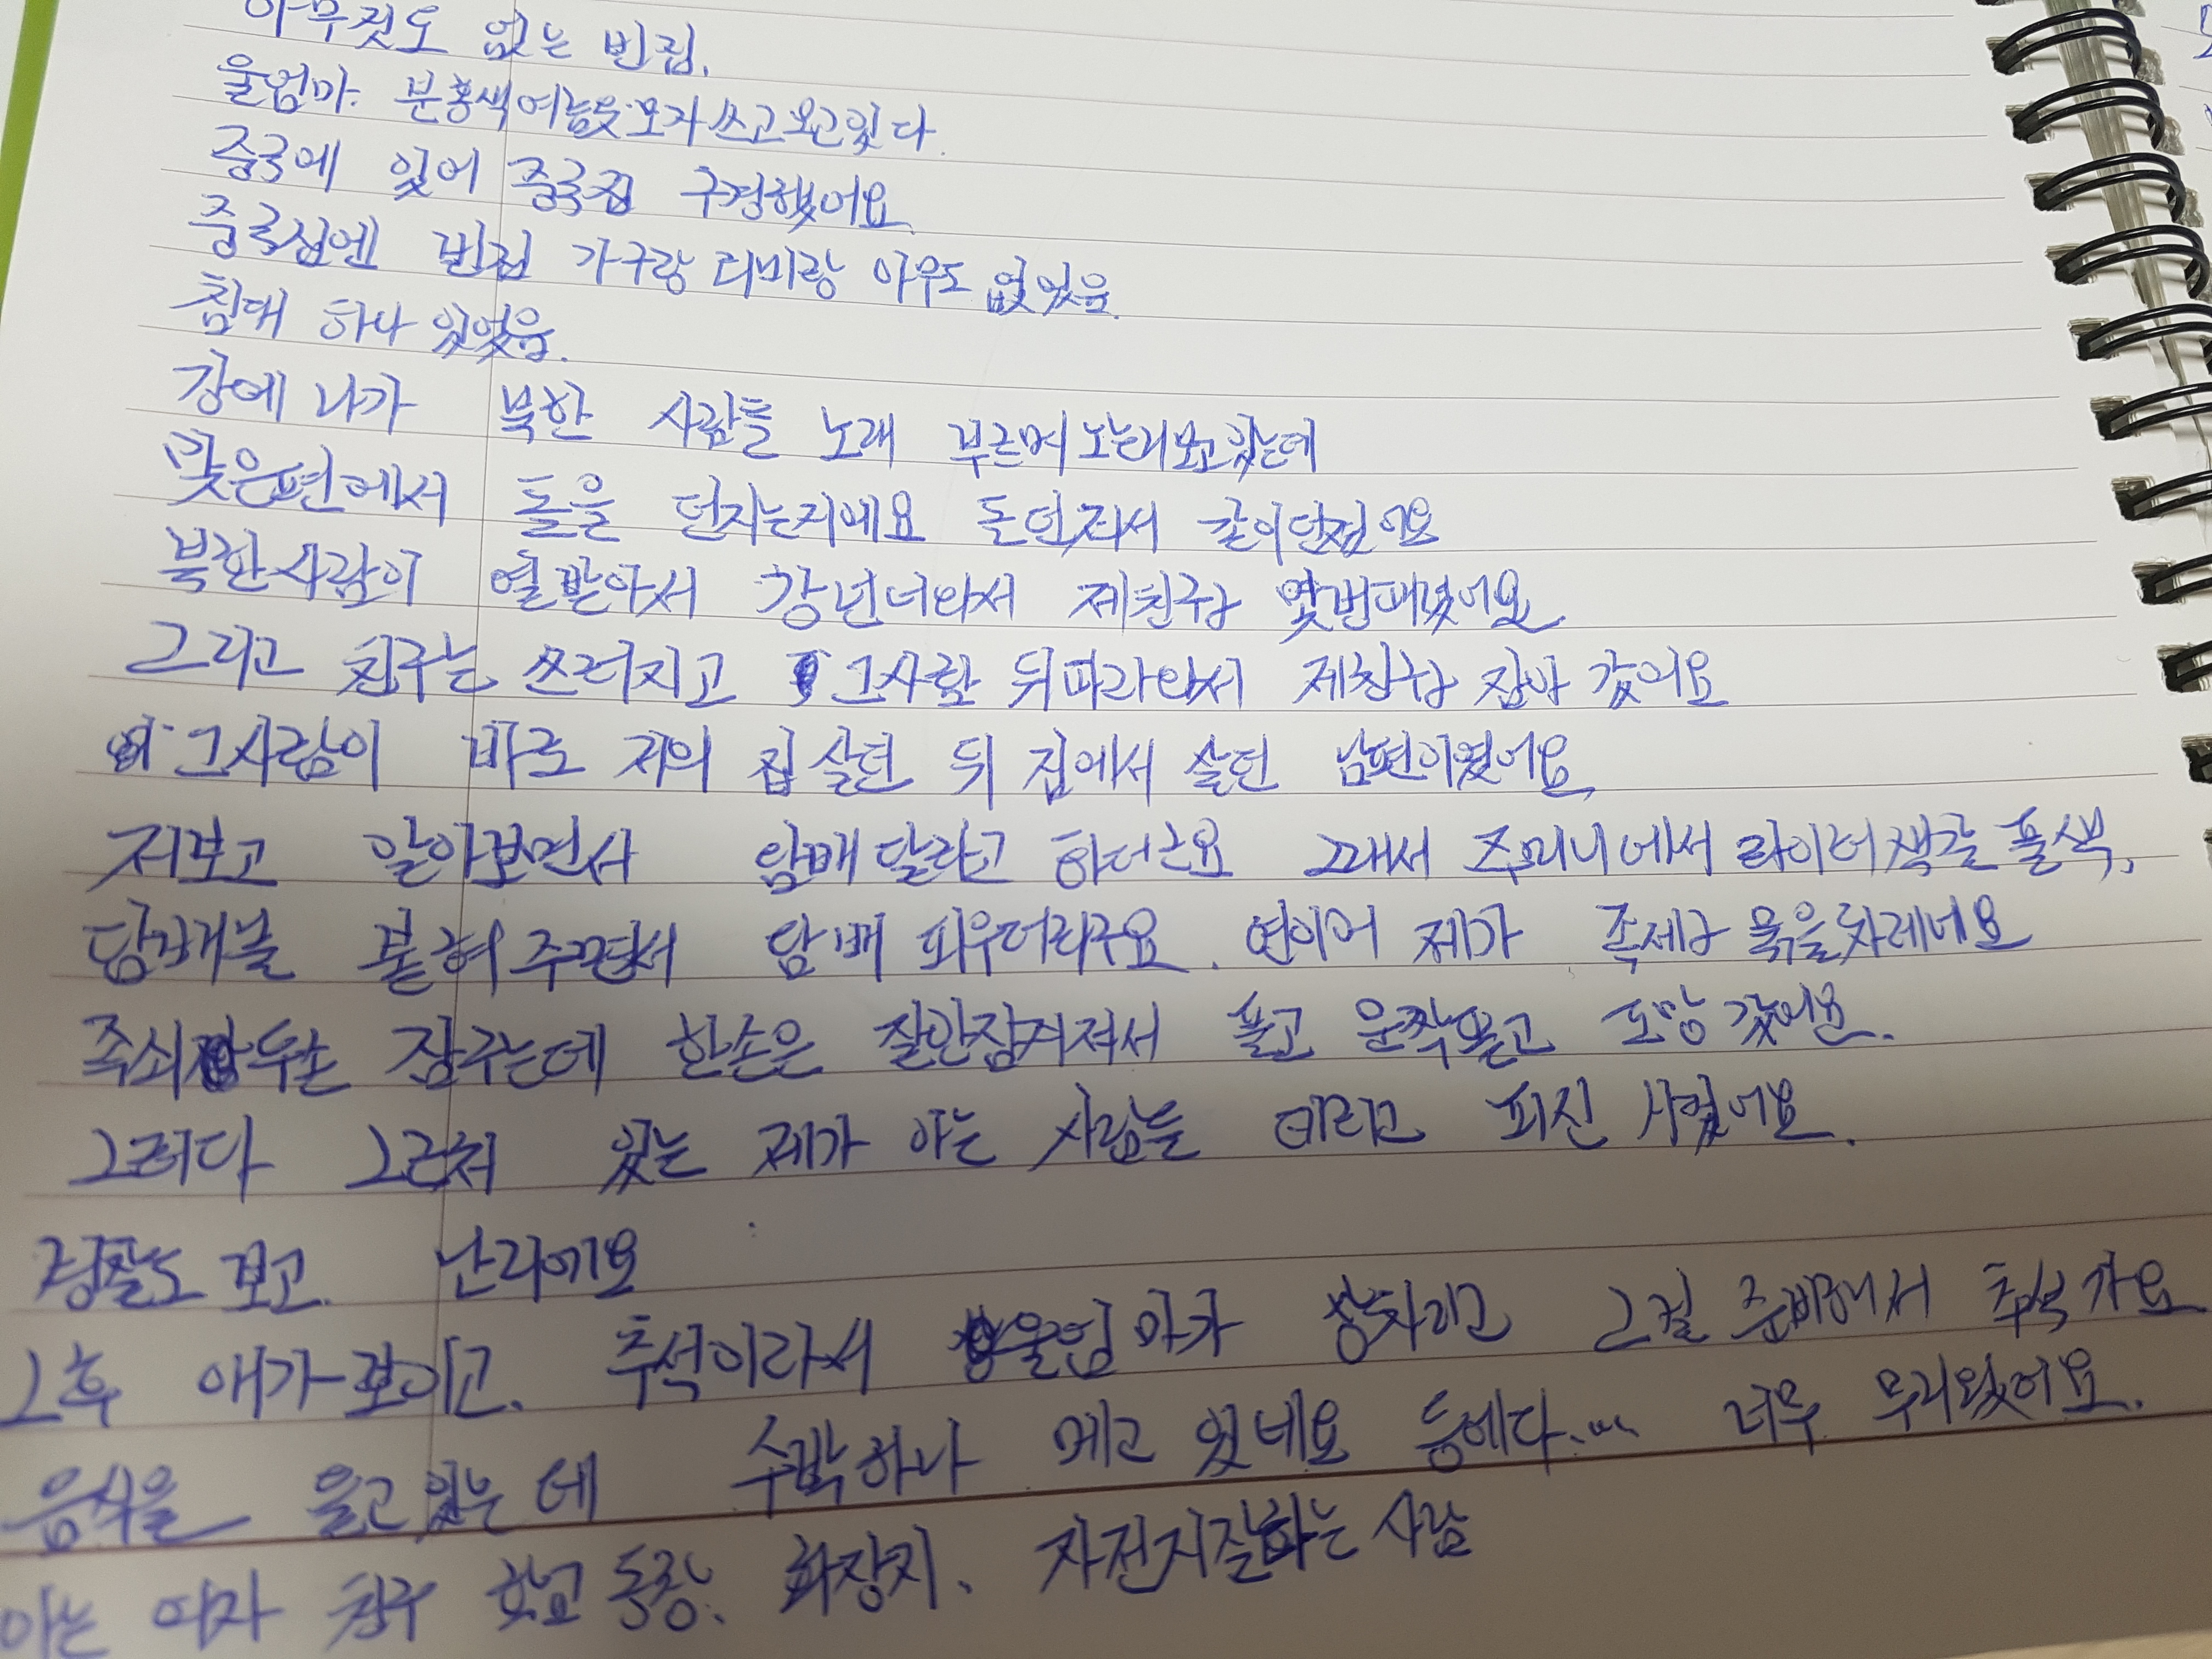 아무것도 없는 빈집.
울엄마. 분홍색여름옷모자쓰고오고있다.
중국에 있어 중국집 구경했어요.
중국집엔 빈집 가구랑 티비랑 아무도 없었음.
침대 하나 있었음.
강에 나가 북한 사람들 노래 부르며 노는데 보고있는데
맞은편에서 돌을 던지는거에요 돈던져서 같이던졌어요
북한사람이 열받아서 강넌너와서 제친구가 몇번때렸어요
그리고 친구는 쓰러지고 그사람 뒤따라와서 제친구가 잡아 갔어요
그사람이 바로 저의 집 살던 뒤 집에서 살던 남편이였어요
저보고 알아보면서 담배 달라고 하더군요 그래서 주머니에서 라이터색깔 풀색,
담배불 붙혀주면서 담배 피우더라구요. 연이어 제가 족세가 묶을차례네요
족쇠 두손 잠구는데 한손은 잘안잠겨져서 풀고 운짝풀고 도망 갔어요.
그러다 그근처 있는 제가 아는 사람들 데리고 피신 시켰어요.
경찰도 보고. 난리에요
그후 애가 보이고. 추석이라서 울엄마가 상차리고 그걸 준비해서 추석가요
음식을 들고있는데 수박하나 메고 있네요 등에다..... 너무 무거웠어요.
아는 여자 친구 학교 동창. 화장지. 자전거질하는 사람